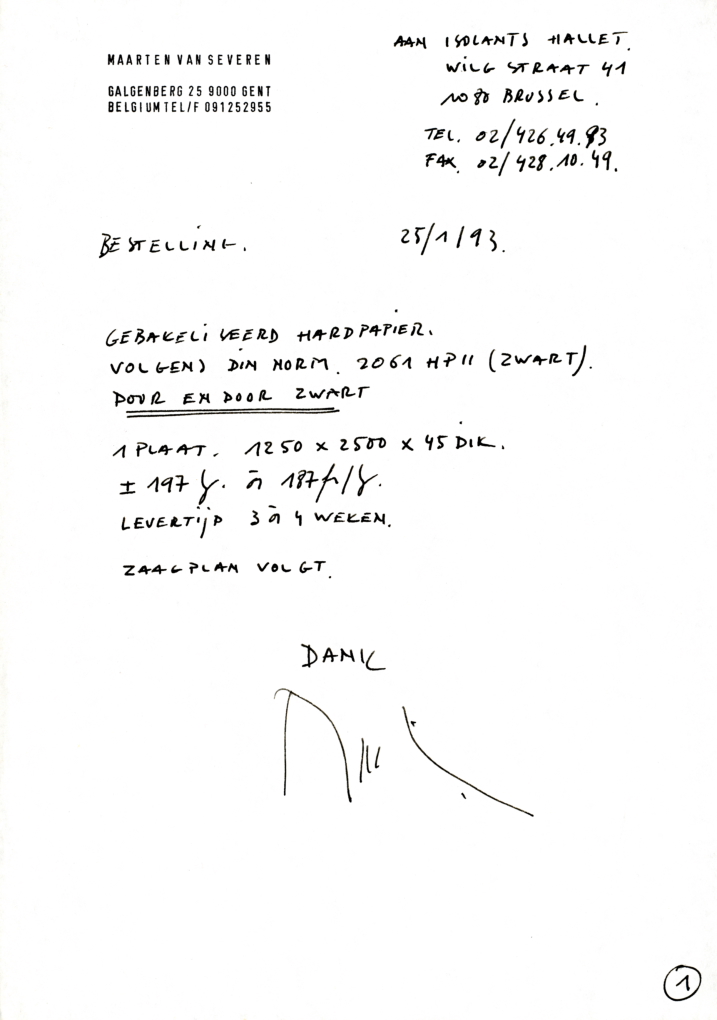 MAARTEN VAN SEVEREN
GALGENBERG 25 9000 GENT
BELGIUM TEL/F 091252955
AAN ISOLANTS HALLET.
WILGSTRAAT 41
1080 BRUSSEL.
TEL. 02/426.49.93
FAX. 02/428.10.49.
BESTELLING.
25/1/93.
GEBAKELIVEERD HARDPAPIER.
VOLGENS DIN NORM. 2061 HPII (ZWART).
DOOR EN DOOR ZWART
1 PLAAT. 1250 x 2500 x 45 DIK.
± 197 à 187 fr/
LEVERTIJD 3 à 4 WEKEN.
ZAAGPLAN VOLGT.
DANK
1